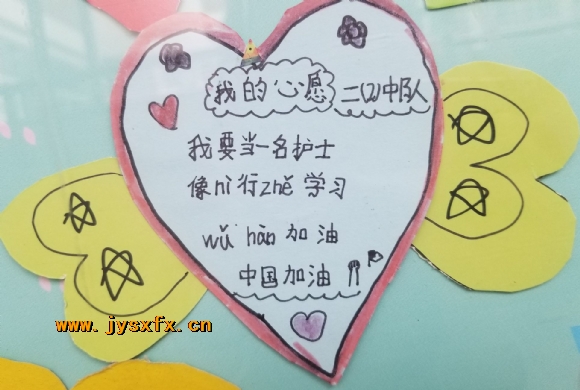 我的心愿 二(2)中队
我要当一名护士
像nì行zhě学习
wǔ hàn加油
中国加油!!
www.jysxfx.cn